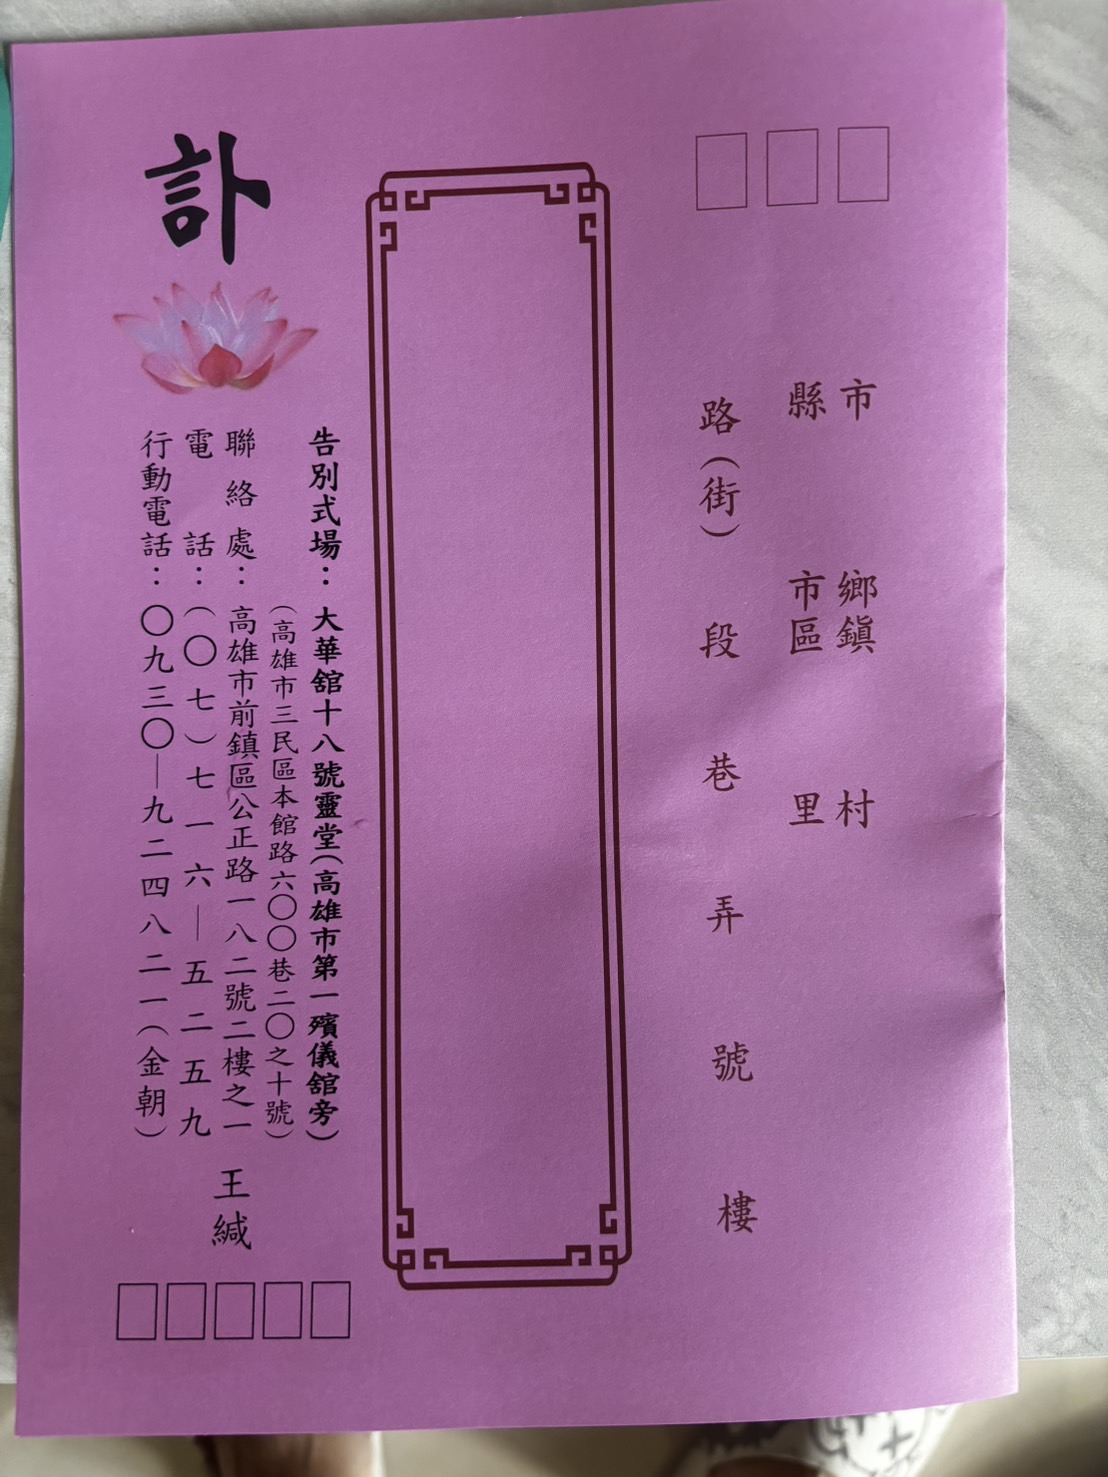 市
縣
鄉鎮
市區
村
里
路（街）段巷弄號樓
訃
告別式場：大華舘十八號靈堂（高雄市第一殯儀舘旁）
（高雄市三民區本館路六〇〇巷二〇之十號）
聯絡處：高雄市前鎮區公正路一八二號二樓之一
王緘
電話：（〇七）七一六—五二五九
行動電話：〇九三〇—九二四八二一（金朝）